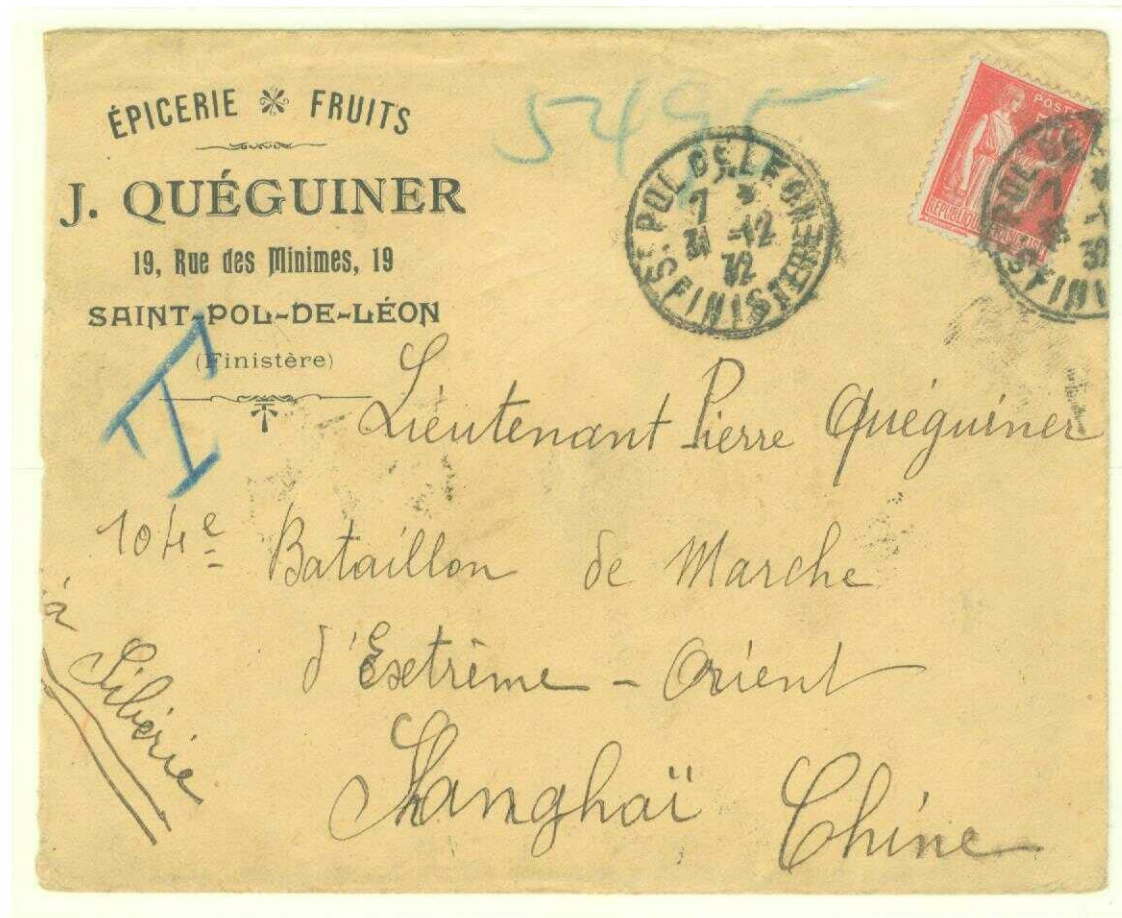 ÉPICERIE FRUITS
J. QUÉGUINER
19, Rue des Minimes, 19
SAINT-POL-DE-LÉON
(Finistère)
5495
ST POL DE LEON
7 *
31 -12
32
FINISTERE
POSTES
REPUBLIQUE FRANÇAISE
POL DE
7 *
32
FINI
T
Lieutenant Pierre Quéguiner
104e Bataillon de Marche
d'Extrême-Orient
Shanghaï Chine
à Sibérie